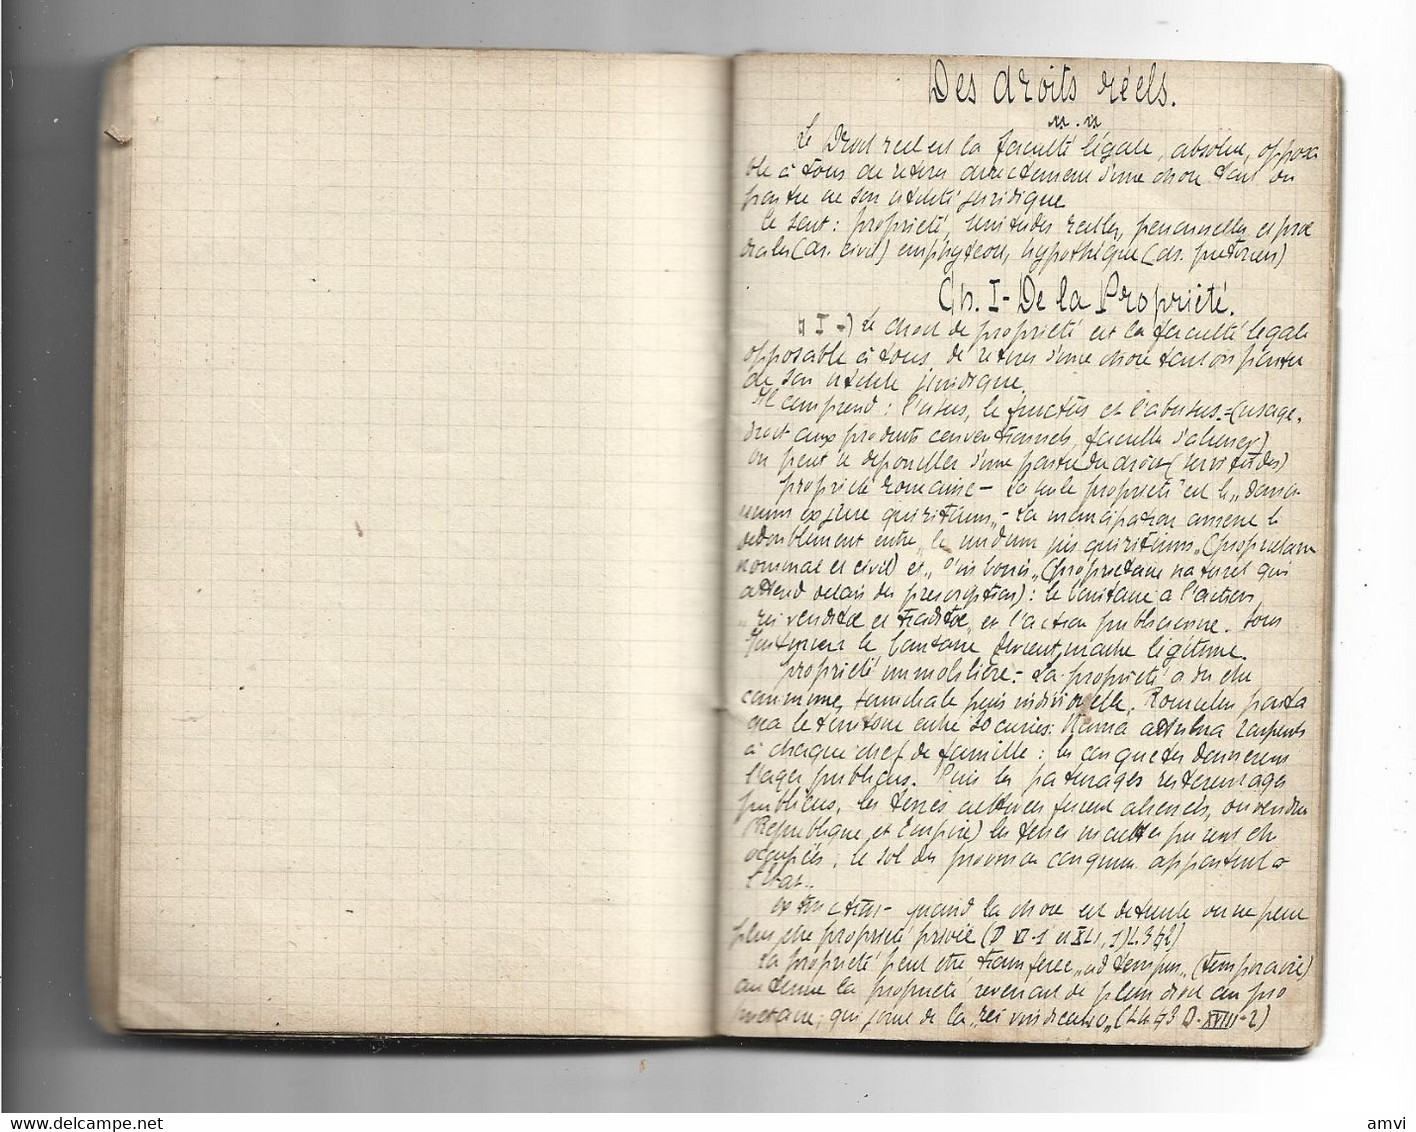 Des droits réels.
Le Droit réel est la faculté légale, absolue, opposa
ble à tous de retirer directement d'une chose tout ou
partie de son utilité juridique
Ce sont : propriété, servitudes réelles, personnelles et pré
diales (dr. civil) emphytéose, hypothèque (dr. prétorien)
Ch. I - De la Propriété.
§ I -) Le droit de propriété est la faculté légale
opposable à tous de retirer d'une chose tout ou partie
de son utilité juridique.
Il comprend : l'usus, le fructus et l'abusus = (usage,
droit aux produits conventionnels, faculté d'aliéner)
on peut se dépouiller d'une partie du droit (servitudes)
propriété romaine - La seule propriété est le "domi
nium ex jure quiritium" - La mancipation amène le
dédoublement entre "le nudum jus quiritium" (propriétaire
nominal et civil) et "l'in bonis" (propriétaire naturel qui
attend délais des prescriptions) : le bonitaire a l'action
"rei venditae et traditae" et l'action publicienne. Sous
Justinien le bonitaire devient maître légitime.
propriété immobilière - La propriété a dû être
commune, familiale puis individuelle. Romulus parta
gea le territoire entre 30 curies: Numa attribua 2 arpents
à chaque chef de famille : les conquêtes donnèrent
l'ager publicus. Puis les pâturages restèrent ager
publicus, les terres cultivées furent aliénés, ou vendues
(République et Empire) les terres incultes purent être
occupées. Le sol des provinces conquises appartient à
l'Etat..
extinction - quand la chose est détruite ou ne peut
plus être propriété privée (D VI-1 et XLI, 1)
La propriété peut être transférée "ad tempus" (temporaire)
au terme la propriété revenant de plein droit au pro
priétaire; qui jouit de la "rei vindicatio"
amvi
www.delcampe.net